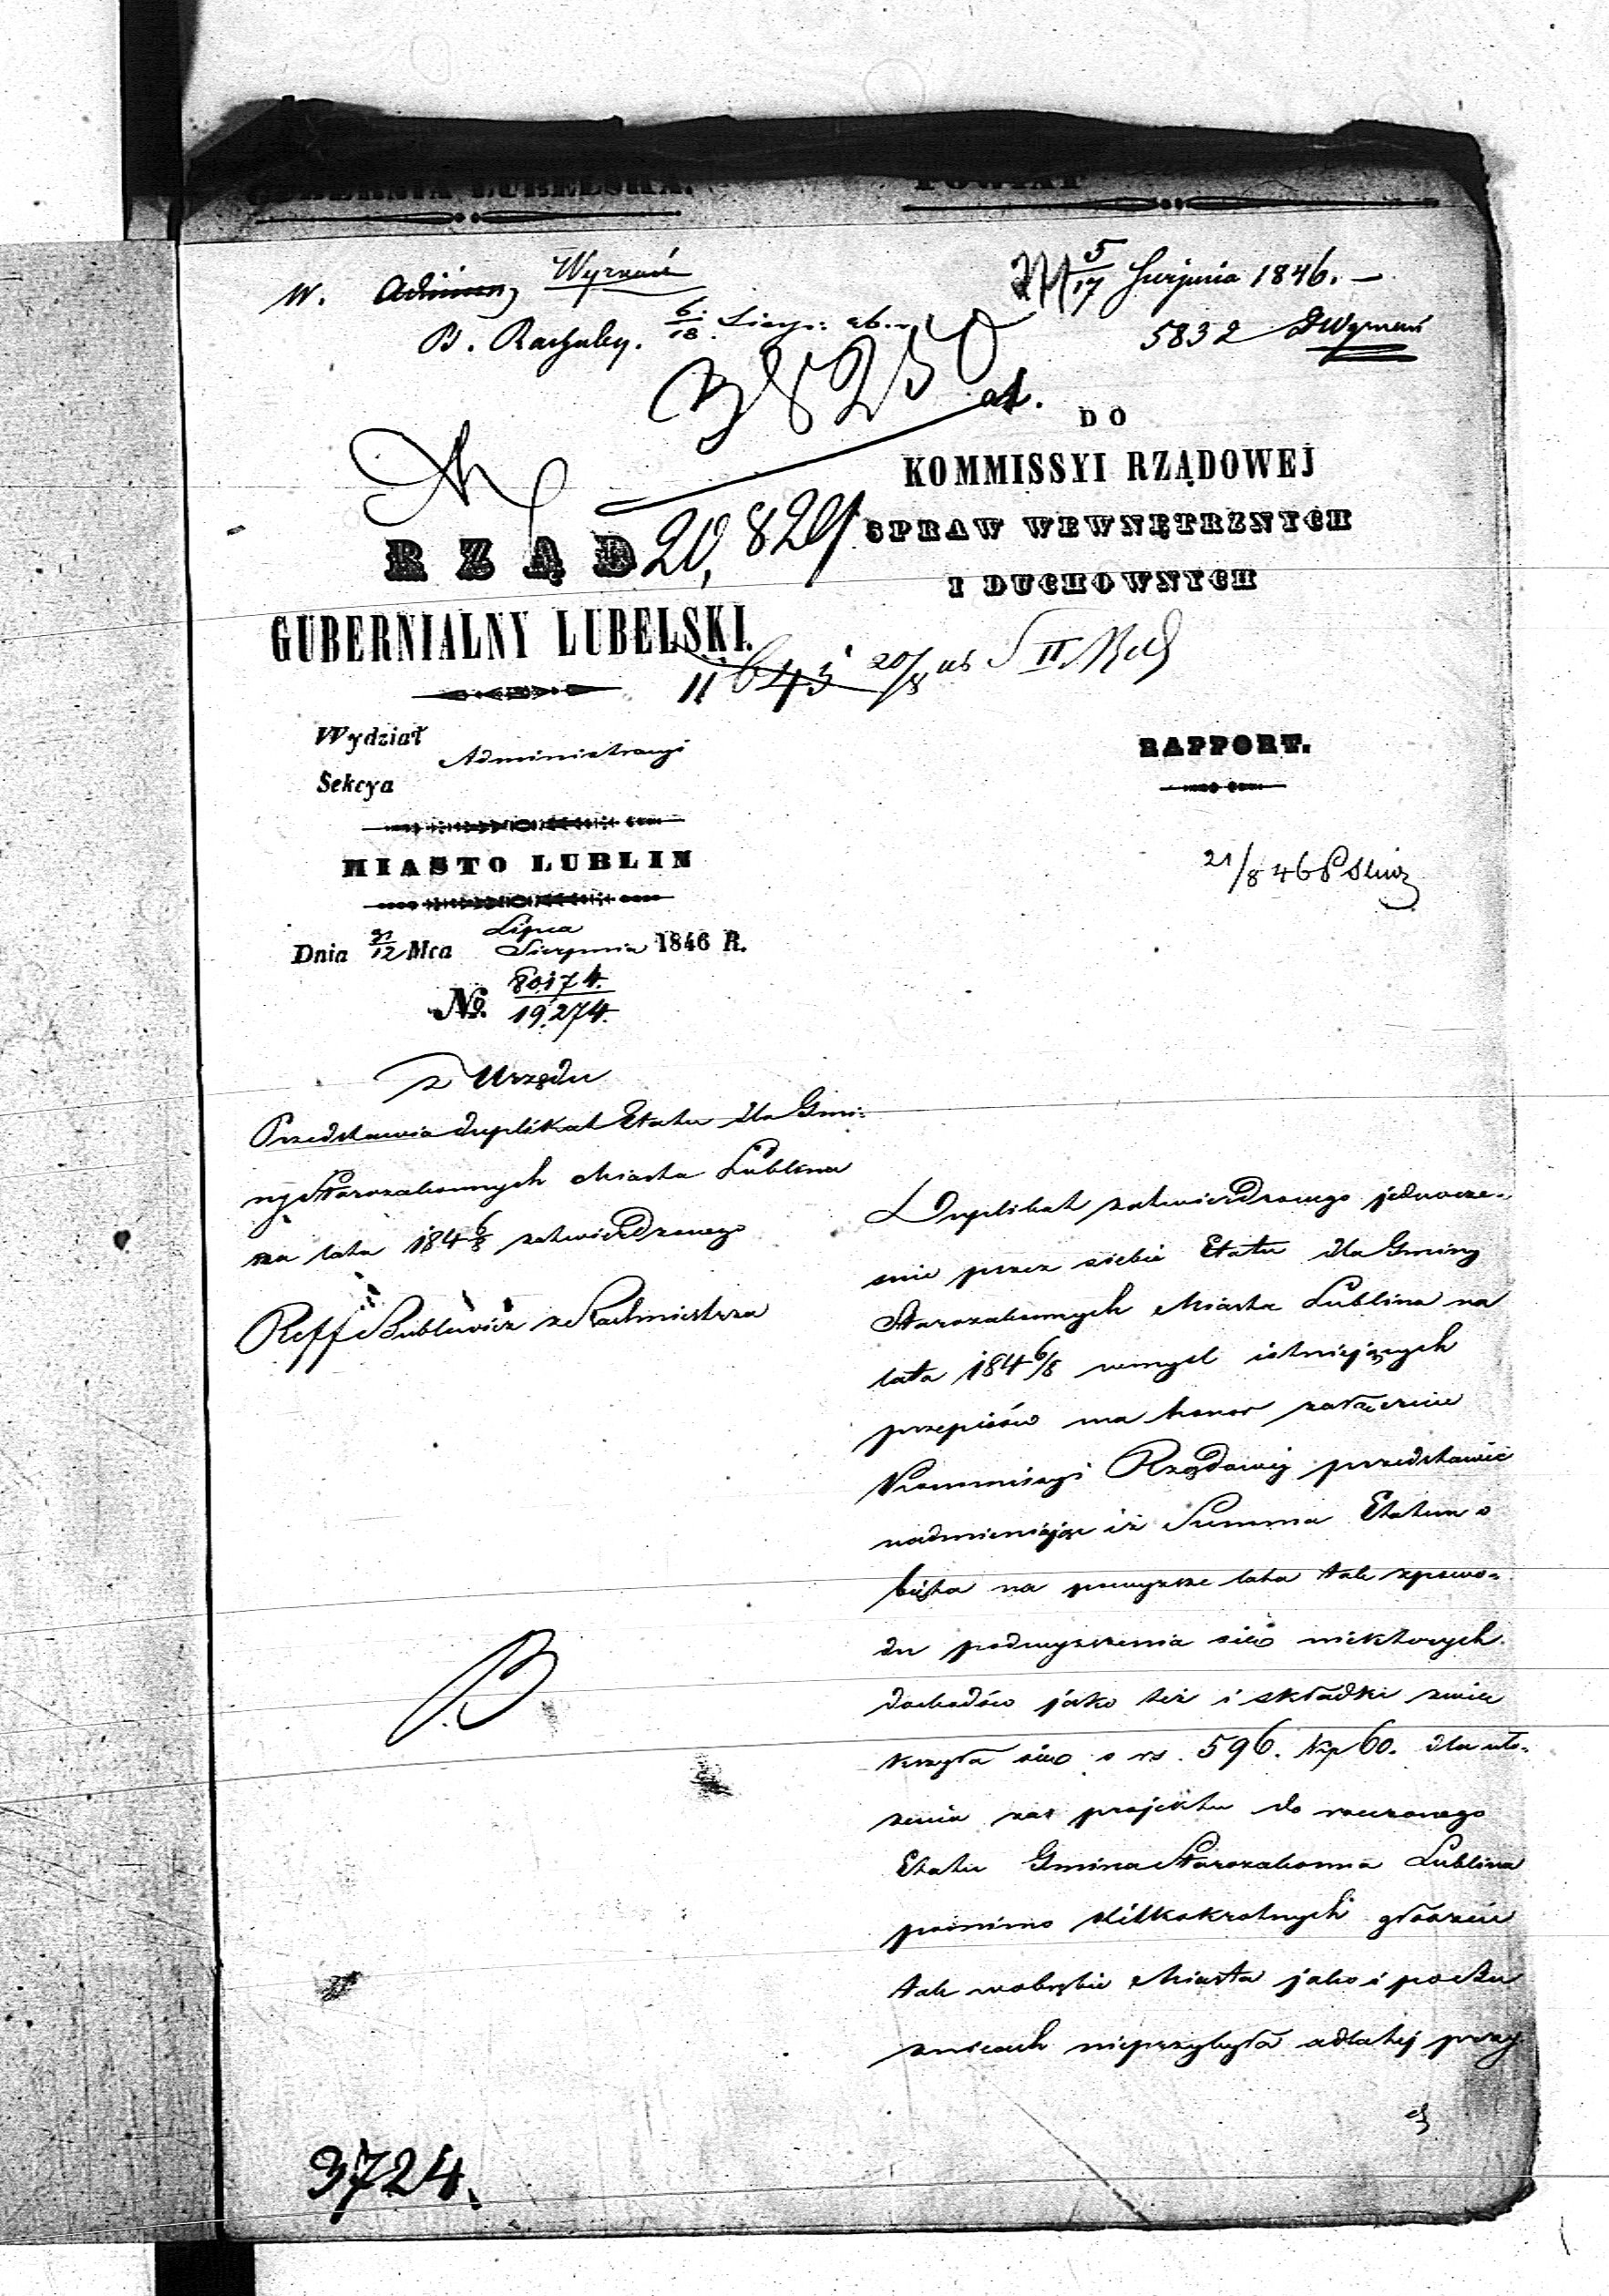 GUBERNIA LUBELSKA.
POWIAT
W. Admin. Wyznań
B. Rachuby. 6/18 Sierp:
5/17 Sierpnia 1846. —
5832 D Wyznań
38250
DO
KOMMISSYI RZĄDOWEJ
SPRAW WEWNĘTRZNYCH
I DUCHOWNYCH
20,829
RZĄD
GUBERNIALNY LUBELSKI.
11643 20/8 S II
Wydział Administracyi
Sekcya
RAPPORT.
MIASTO LUBLIN
21/8 46
Dnia 31/12 Mca Lipca Sierpnia 1846 R.
No. 80,174.
19,274.
z Urzędu
Przedstawia duplikat Etatu dla Gmi-
ny Starozakonnych Miasta Lublina
na lata 184 6/8 zatwierdzonego
Reff Bublewicz z Rachmistrza
Duplikat zatwierdzonego jednocze-
śnie przez siebie Etatu dla Gminy
Starozakonnych Miasta Lublina na
lata 184 6/8 wmyśl istniejących
przepisów ma honor załączeniu
Kommissyi Rządowej przedstawić
nadmieniając iż Summa Etatem o
bięta na powyższe lata tak zpowo-
du podwyższenia sie niektorych
dochodów jako też i składki zwię
kszyła sie o rs. 596. kp 60. dla uło-
żenia zaś projektu do rzeczonego
Etatu Gmina Starozakonna Lublina
pomimo kilkokrotnych głoszeń
tak wobrębie Miasta jako i po Bu
żnicach nieprzybyła a dlatej przy
3724.